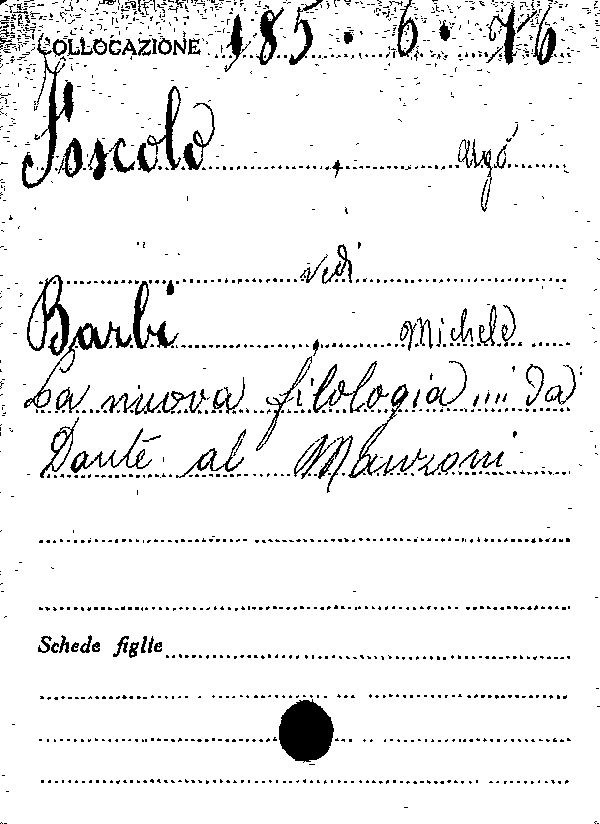 COLLOCAZIONE 185.6.76
Foscolo, Ugo
vedi
Barbi, Michele
La nuova filologia .... da
Dante al Manzoni
Schede figlie